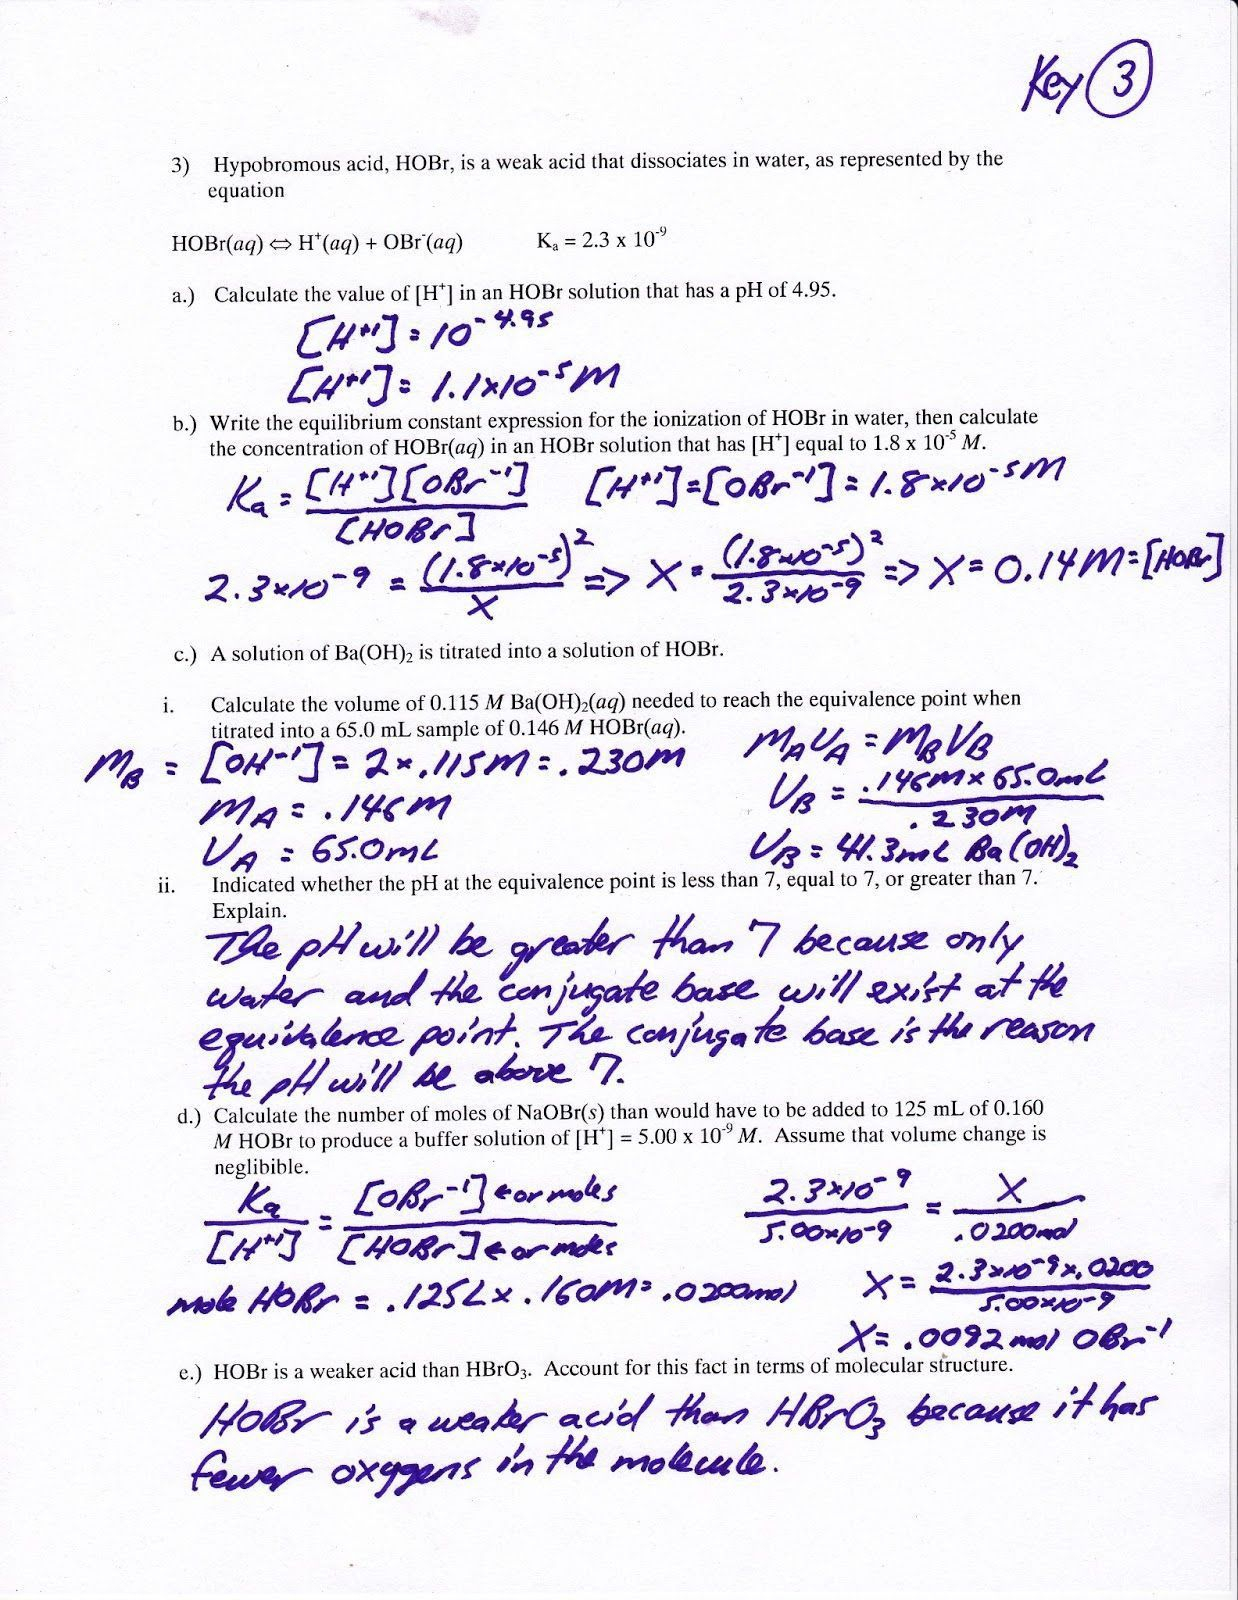 Key 3
3) Hypobromous acid, HOBr, is a weak acid that dissociates in water, as represented by the
equation
HOBr(aq) ⇔ H⁺(aq) + OBr⁻(aq) Kₐ = 2.3 x 10⁻⁹
a.) Calculate the value of [H⁺] in an HOBr solution that has a pH of 4.95.
[H⁺¹] = 10⁻⁴·⁹⁵
[H⁺¹] = 1.1x10⁻⁵ M
b.) Write the equilibrium constant expression for the ionization of HOBr in water, then calculate
the concentration of HOBr(aq) in an HOBr solution that has [H⁺] equal to 1.8 x 10⁻⁵ M.
Ka = [H⁺¹][OBr⁻¹] / [HOBr] [H⁺¹]=[OBr⁻¹] = 1.8x10⁻⁵ M
2.3x10⁻⁹ = (1.8x10⁻⁵)² / X => X = (1.8x10⁻⁵)² / 2.3x10⁻⁹ => X = 0.14M = [HOBr]
c.) A solution of Ba(OH)₂ is titrated into a solution of HOBr.
i. Calculate the volume of 0.115 M Ba(OH)₂(aq) needed to reach the equivalence point when
titrated into a 65.0 mL sample of 0.146 M HOBr(aq).
M_B = [OH⁻¹] = 2x.115M = .230M M_A V_A = M_B V_B
M_A = .146M V_B = .146M x 65.0mL / .230M
V_A = 65.0mL V_B = 41.3mL Ba(OH)₂
ii. Indicated whether the pH at the equivalence point is less than 7, equal to 7, or greater than 7.
Explain.
The pH will be greater than 7 because only
water and the conjugate base will exist at the
equivalence point. The conjugate base is the reason
the pH will be above 7.
d.) Calculate the number of moles of NaOBr(s) than would have to be added to 125 mL of 0.160
M HOBr to produce a buffer solution of [H⁺] = 5.00 x 10⁻⁹ M. Assume that volume change is
neglibible.
Ka / [H⁺¹] = [OBr⁻¹] ← or moles / [HOBr] ← or moles 2.3x10⁻⁹ / 5.00x10⁻⁹ = X / .0200mol
mole HOBr = .125L x .160M = .0200mol X = 2.3x10⁻⁹x.0200 / 5.00x10⁻⁹
X = .0092 mol OBr⁻¹
e.) HOBr is a weaker acid than HBrO₃. Account for this fact in terms of molecular structure.
HOBr is a weaker acid than HBrO₃ because it has
fewer oxygens in the molecule.